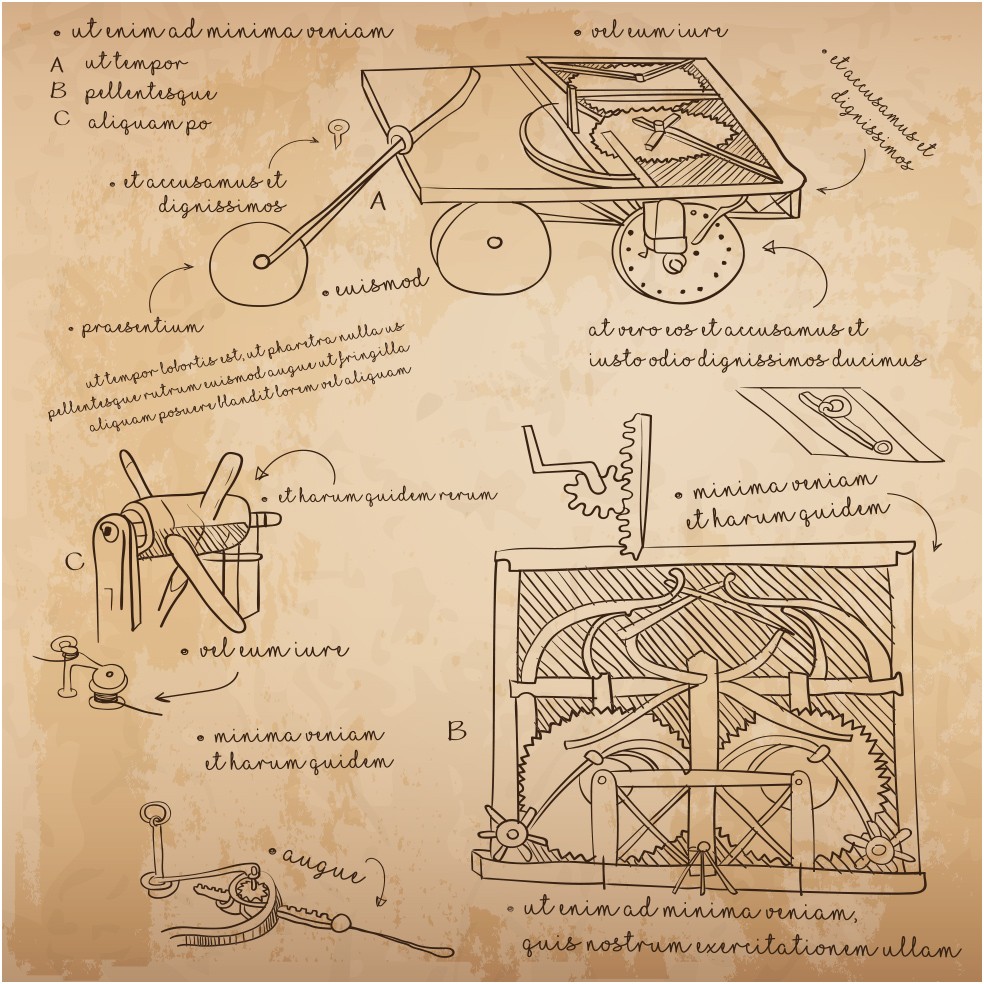 ut enim ad minima veniam
A ut tempor
B pellentesque
C aliquam po
vel eum iure
et accusamus et
dignissimos
et accusamus et
dignissimos
A
euismod
praesentium
ut tempor lobortis est, ut pharetra nulla us
pellentesque rutrum euismod augue ut fringilla
aliquam posuere blandit lorem vel aliquam
at vero eos et accusamus et
iusto odio dignissimos ducimus
et harum quidem rerum
C
minima veniam
et harum quidem
vel eum iure
minima veniam
et harum quidem
B
augue
ut enim ad minima veniam,
quis nostrum exercitationem ullam